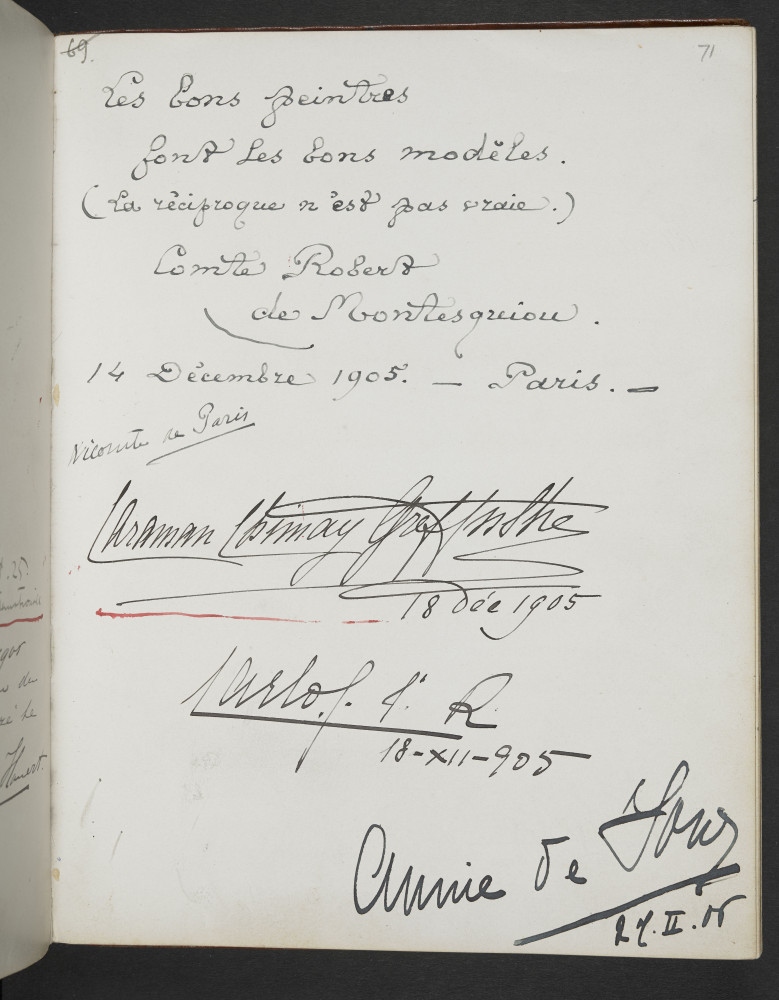 69.
71
Les bons peintres
font les bons modèles.
(La réciproque n'est pas vraie.)
Comte Robert
de Montesquiou.
14 Décembre 1905. — Paris. —
Vicomte de Paris
Caraman Chimay Greffulhe
18 Déc 1905
R
18-XII-905
Annie de
27.II.06